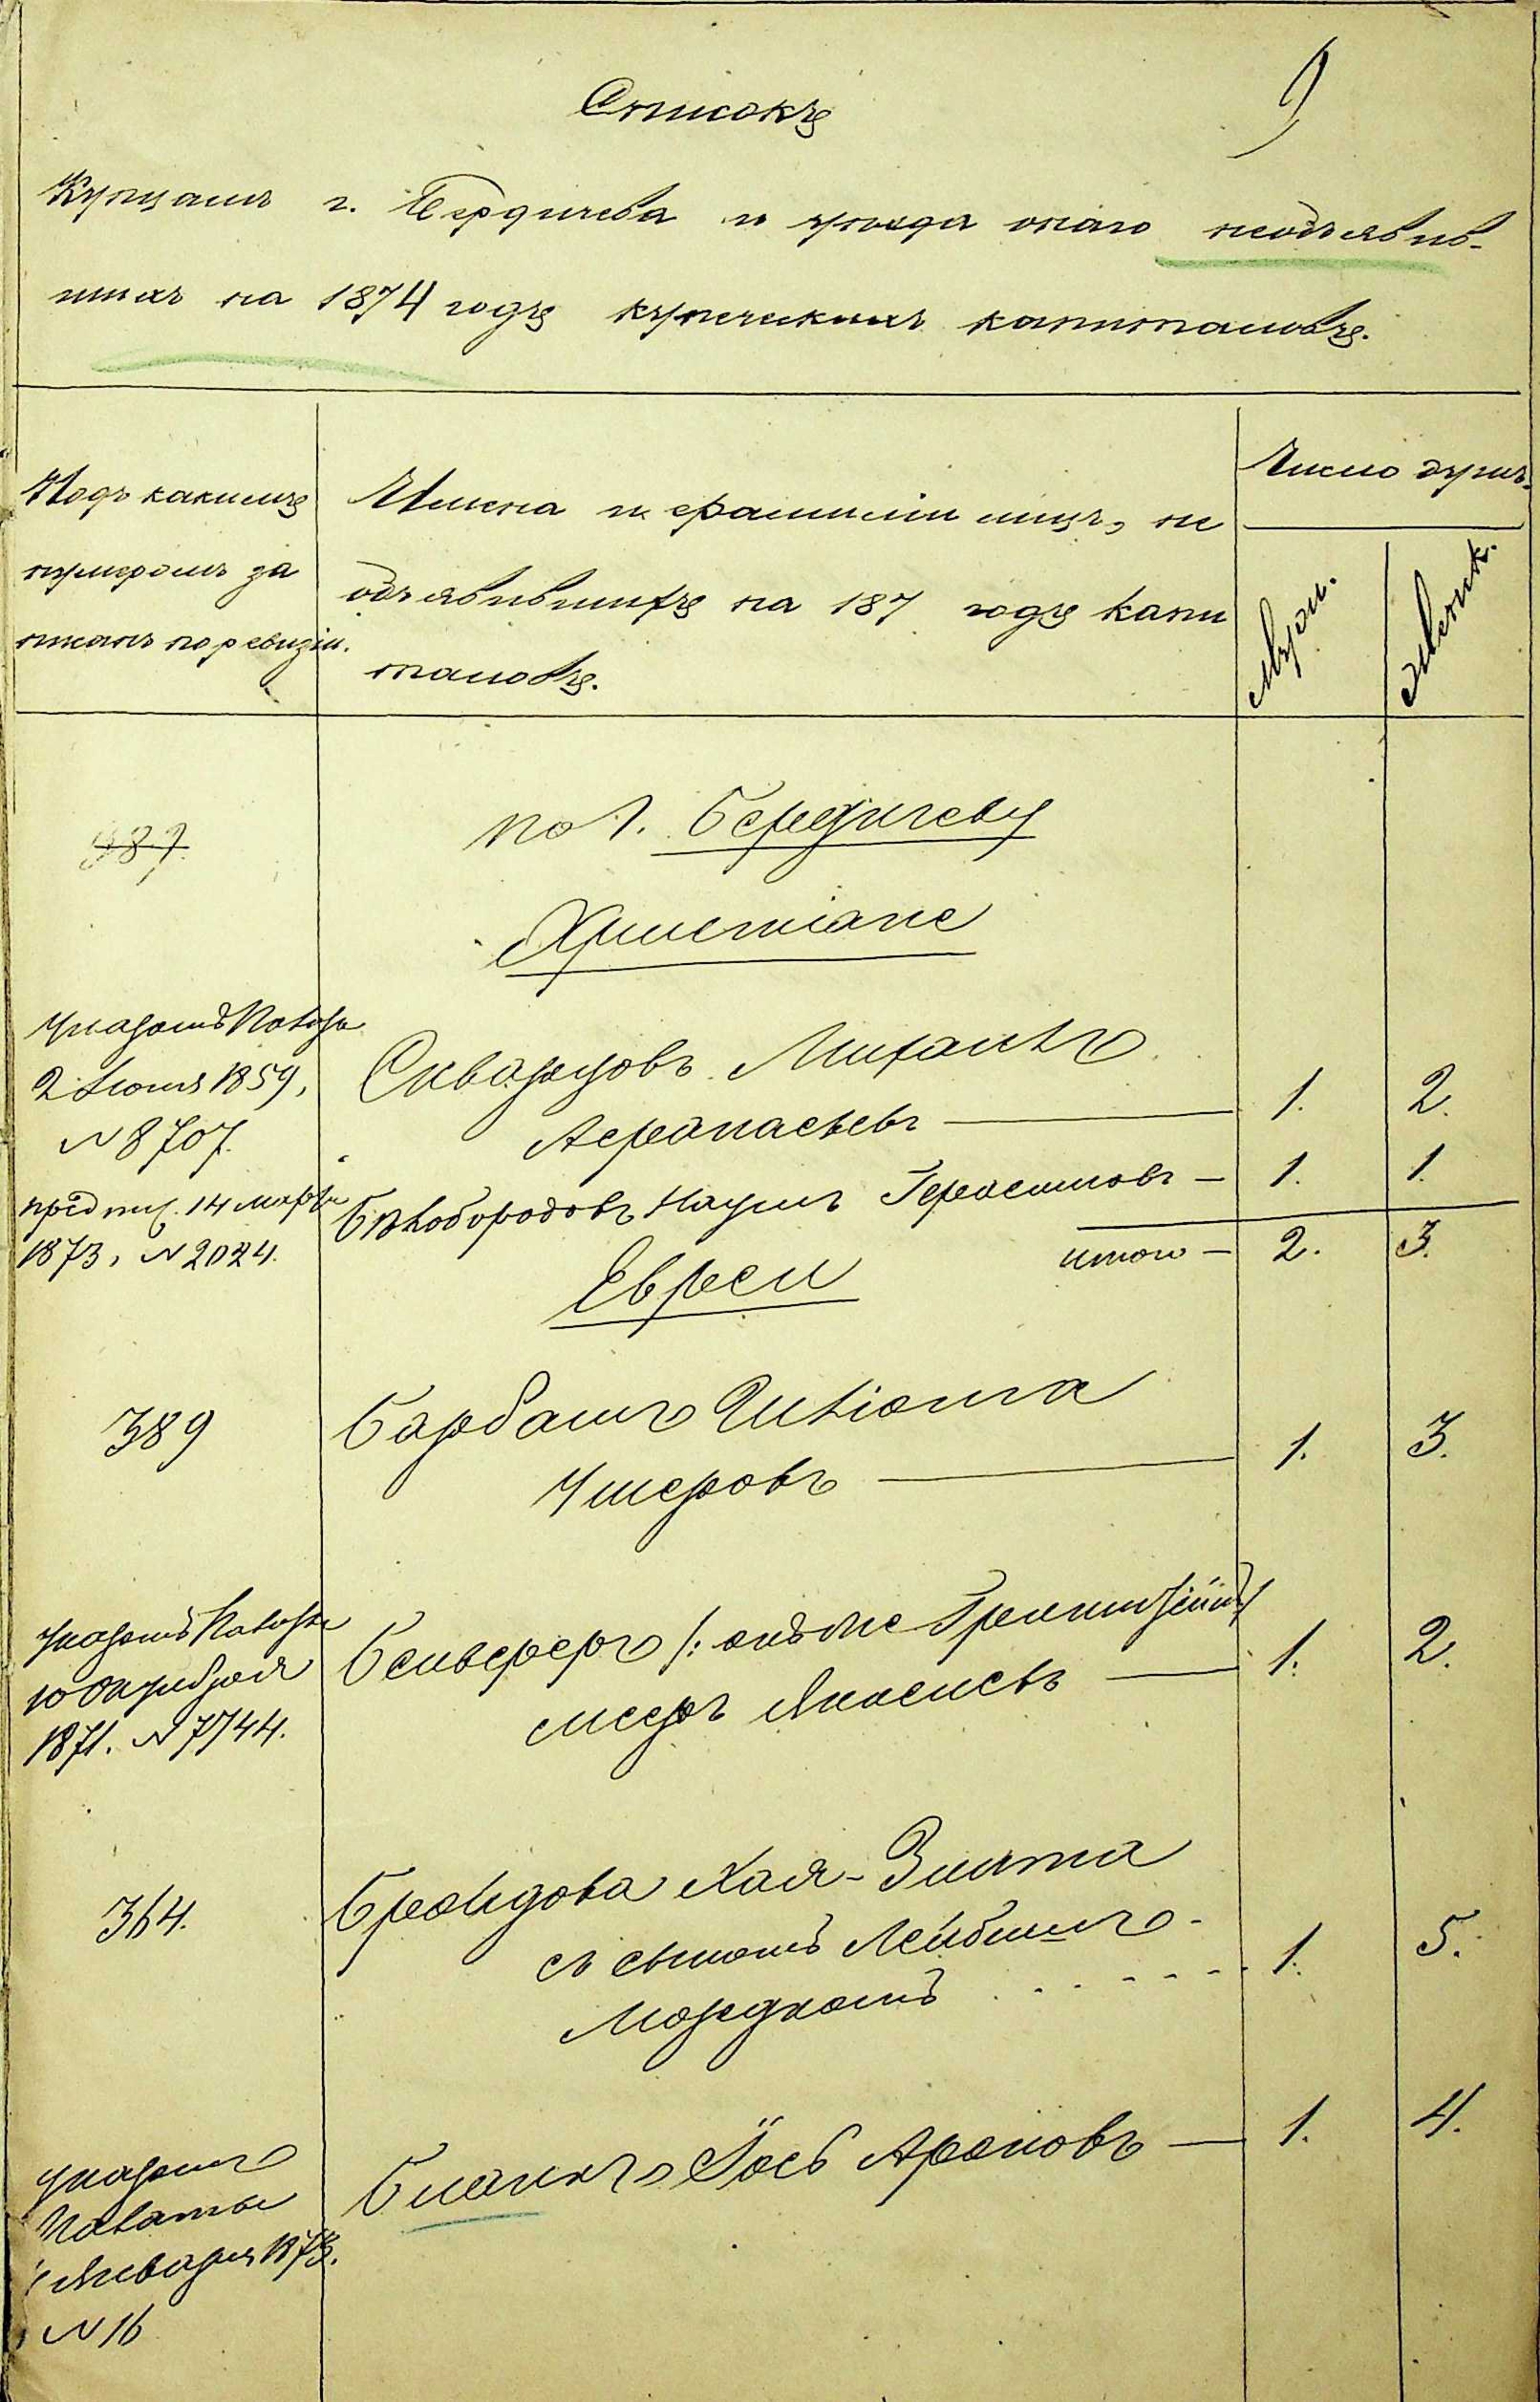 Списокъ
9
Купцамъ г. Бердичева и уѣзда онаго необъявив-
шихъ на 1874 годъ купеческихъ капиталовъ.
Подъ какимъ
нумеромъ за
писанъ по ревизіи.
Имена и фамиліи лицъ, не
объявившихъ на 187 годъ капи
таловъ.
Число душъ.
Муж.
Женск.
387.
по г. Бердичеву
Христіане
Указомъ Палаты
2 Іюня 1859,
N 8707.
Скворцовъ Михаилъ
Афанасьевъ — 1. 2.
предпис. 14 марта
1873, N 2024.
Бѣлобородовъ Наумъ Герасимовъ — 1. 1.
итого — 2. 3.
Евреи
389
Барбашъ
Ушеровъ — 1. 3.
Указомъ Палаты
10 Октября
1871. N 7744.
/: онъ же
Мееръ — 1. 2.
364.
Брандова Хая-Злата
съ сыномъ Лейбишъ-
Мордкомъ . . - - - - 1. 5.
Указомъ
Палаты
Января 1873.
N 16
Бланкъ Іось Ароновъ — 1. 4.